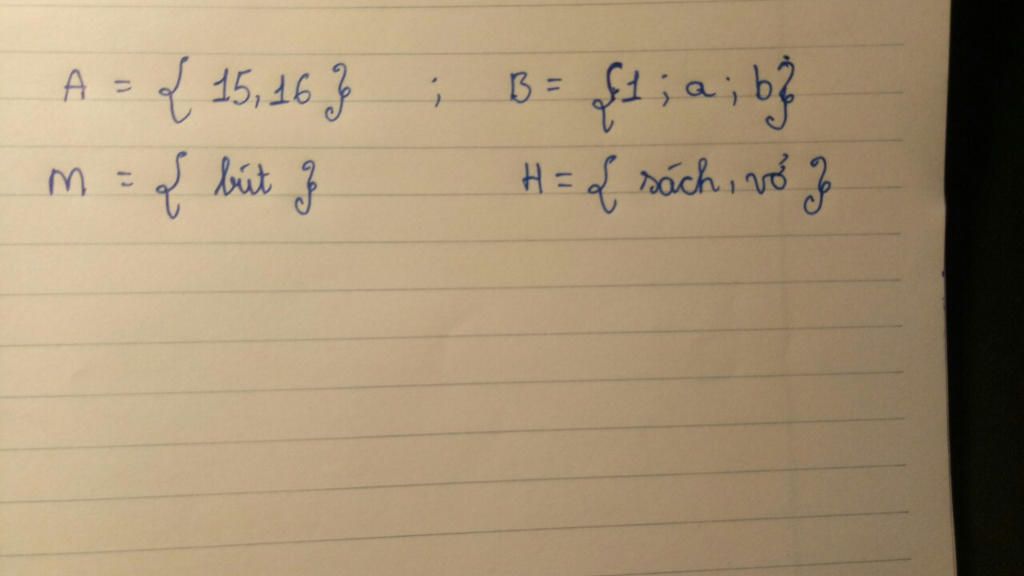 A = { 15, 16 } ; B = {1 ; a ; b}
M = { bút } H = { sách, vở }